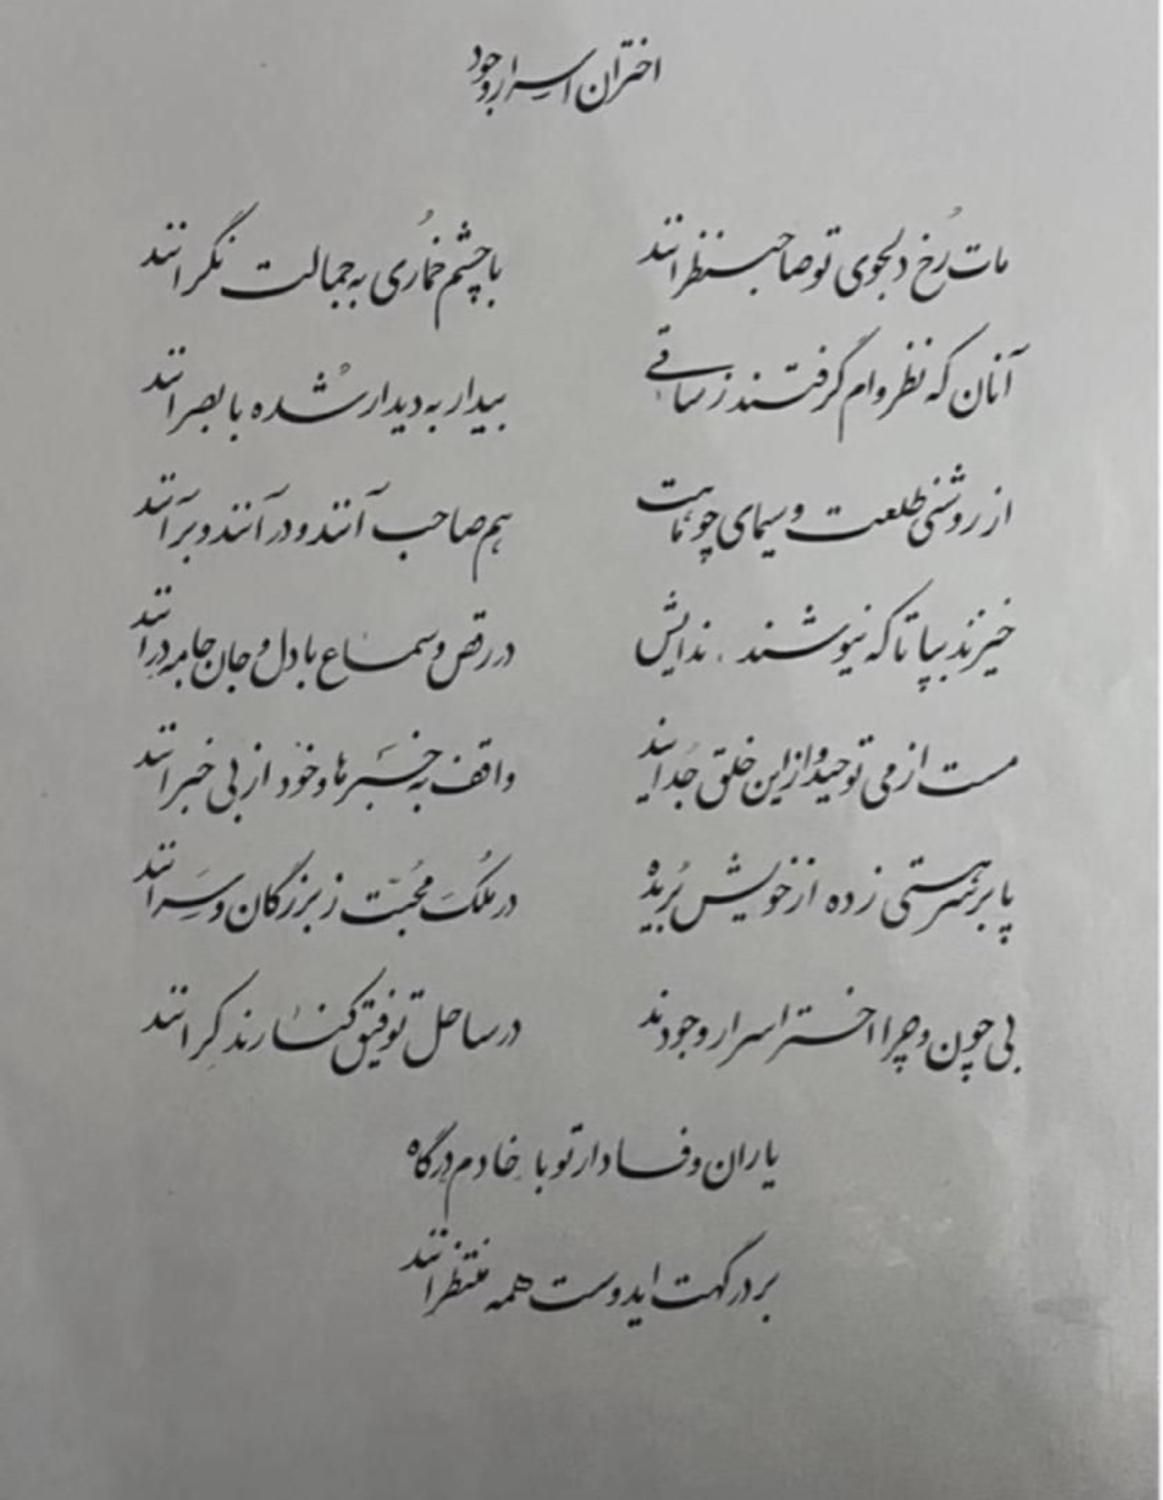 اختران اسرار وجود
مات رُخ دلجوی تو صاحبنظرانند با چشم خُماری به جمالت نگرانند
آنان که نظر وام گرفتند ز ساقی بیدار به دیدار شُده با بصرانند
از روشنی طلعت و سیمای چو ماهت هم صاحب آنند و در آنند و بر آنند
خیزند بپا تا که نیوشند ندایش در رقص و سماع با دل و جان جامه درانند
مست از می توحید و از این خلق جُدایند واقف به خَبَرها و خود از بی خبرانند
پا بر سر هستی زده از خویش بُریده در مُلکَ محُبّت ز بزرگان و سَرانند
بی چون و چرا اختر اسرار وجودند در ساحل توفیق کنار رند کِرانند
یاران وفادار تو با خادم درگاه
بر درگهت ایدوست همه منتظرانند